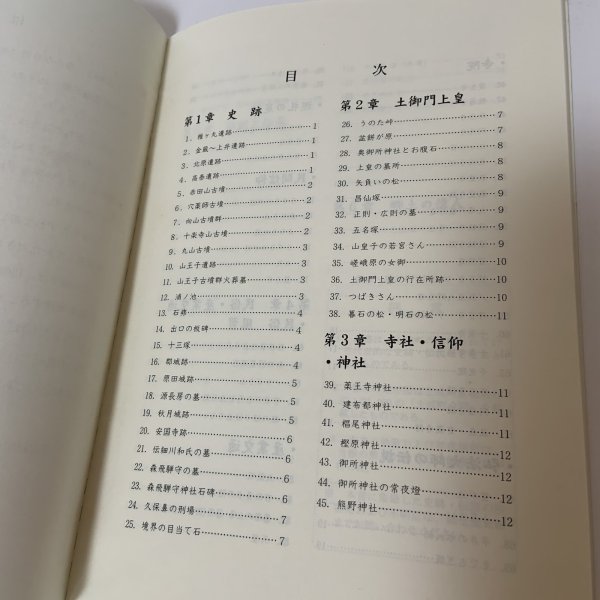 目次
第1章 史跡
1. 椎ヶ丸遺跡……1
2. 金蔵〜上井遺跡……1
3. 北原遺跡……1
4. 高尊遺跡……1
5. 赤田山古墳……2
6. 穴薬師古墳……2
7. 向山古墳群……2
8. 十楽寺山古墳……2
9. 丸山古墳……3
10. 山王子遺跡……3
11. 山王子古墳群火葬墓……3
12. 浦ノ池……3
13. 石鋒……4
14. 出口の板碑……4
15. 十三塚……4
16. 郡城跡……4
17. 原田城跡……5
18. 源長房の墓……5
19. 秋月城跡……5
20. 安国寺跡……6
21. 伝細川和氏の墓……6
22. 森飛騨守の墓……6
23. 森飛騨守神社石碑……6
24. 久保喜の刑場……7
25. 境界の目当て石……7
第2章 土御門上皇
26. うのた峠……7
27. 盆餅が原……7
28. 奥御所神社とお腹石……8
29. 上皇の墓所……8
30. 矢負いの松……8
31. 昌仙塚……9
32. 正則・広則の墓……9
33. 五名塚……9
34. 山皇子の若宮さん……9
35. 嵯峨原の女御……9
36. 土御門上皇の行在所跡……10
37. つばきさん……10
38. 暮石の松・明石の松……11
第3章 寺社・信仰
・神社
39. 薬王寺神社……11
40. 建布都神社……11
41. 樫尾神社……11
42. 樫原神社……12
43. 御所神社……12
44. 御所神社の常夜燈……12
45. 熊野神社……12